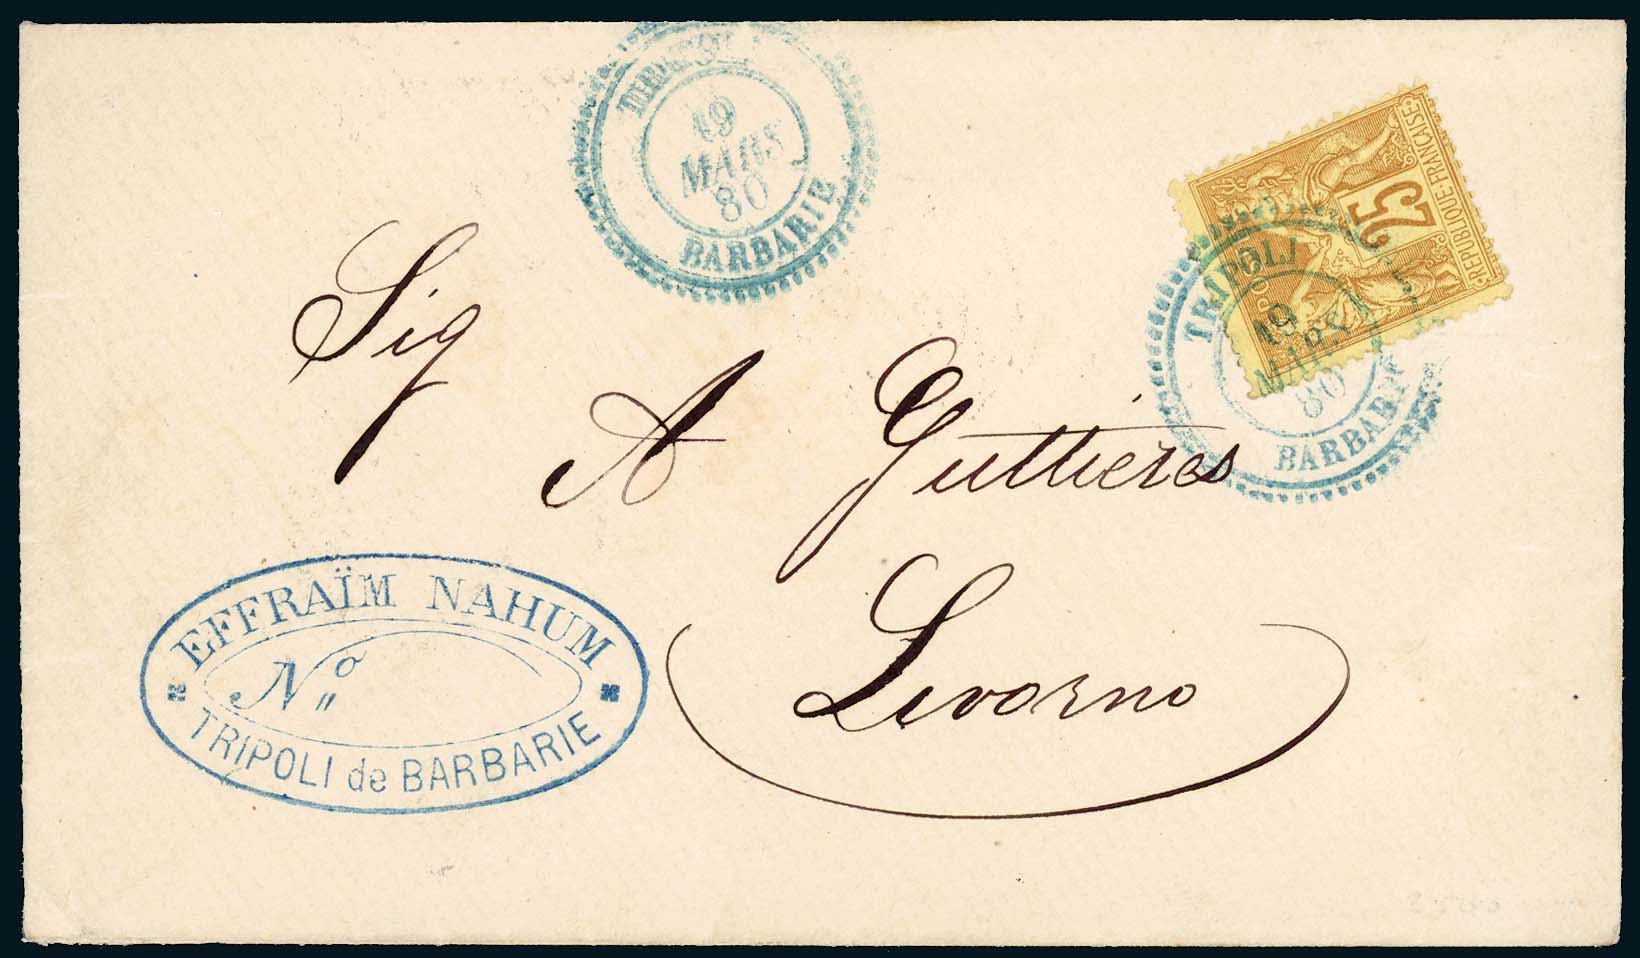 TRIPOLI
19
MARS
80
BARBARIE
25
REPUBLIQUE FRANCAISE
TRIPOLI
19
MARS
80
BARBARIE
Sig
A Guttieres
Livorno
EFFRAÏM NAHUM
Nº
TRIPOLI de BARBARIE